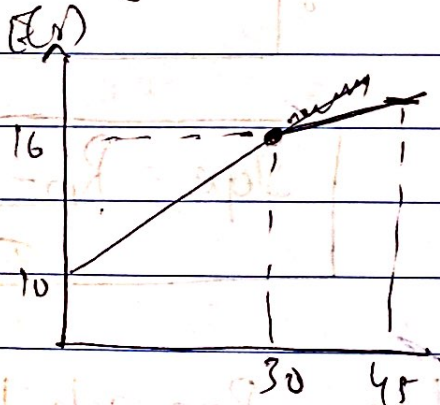 E(r)
16
10
30 45